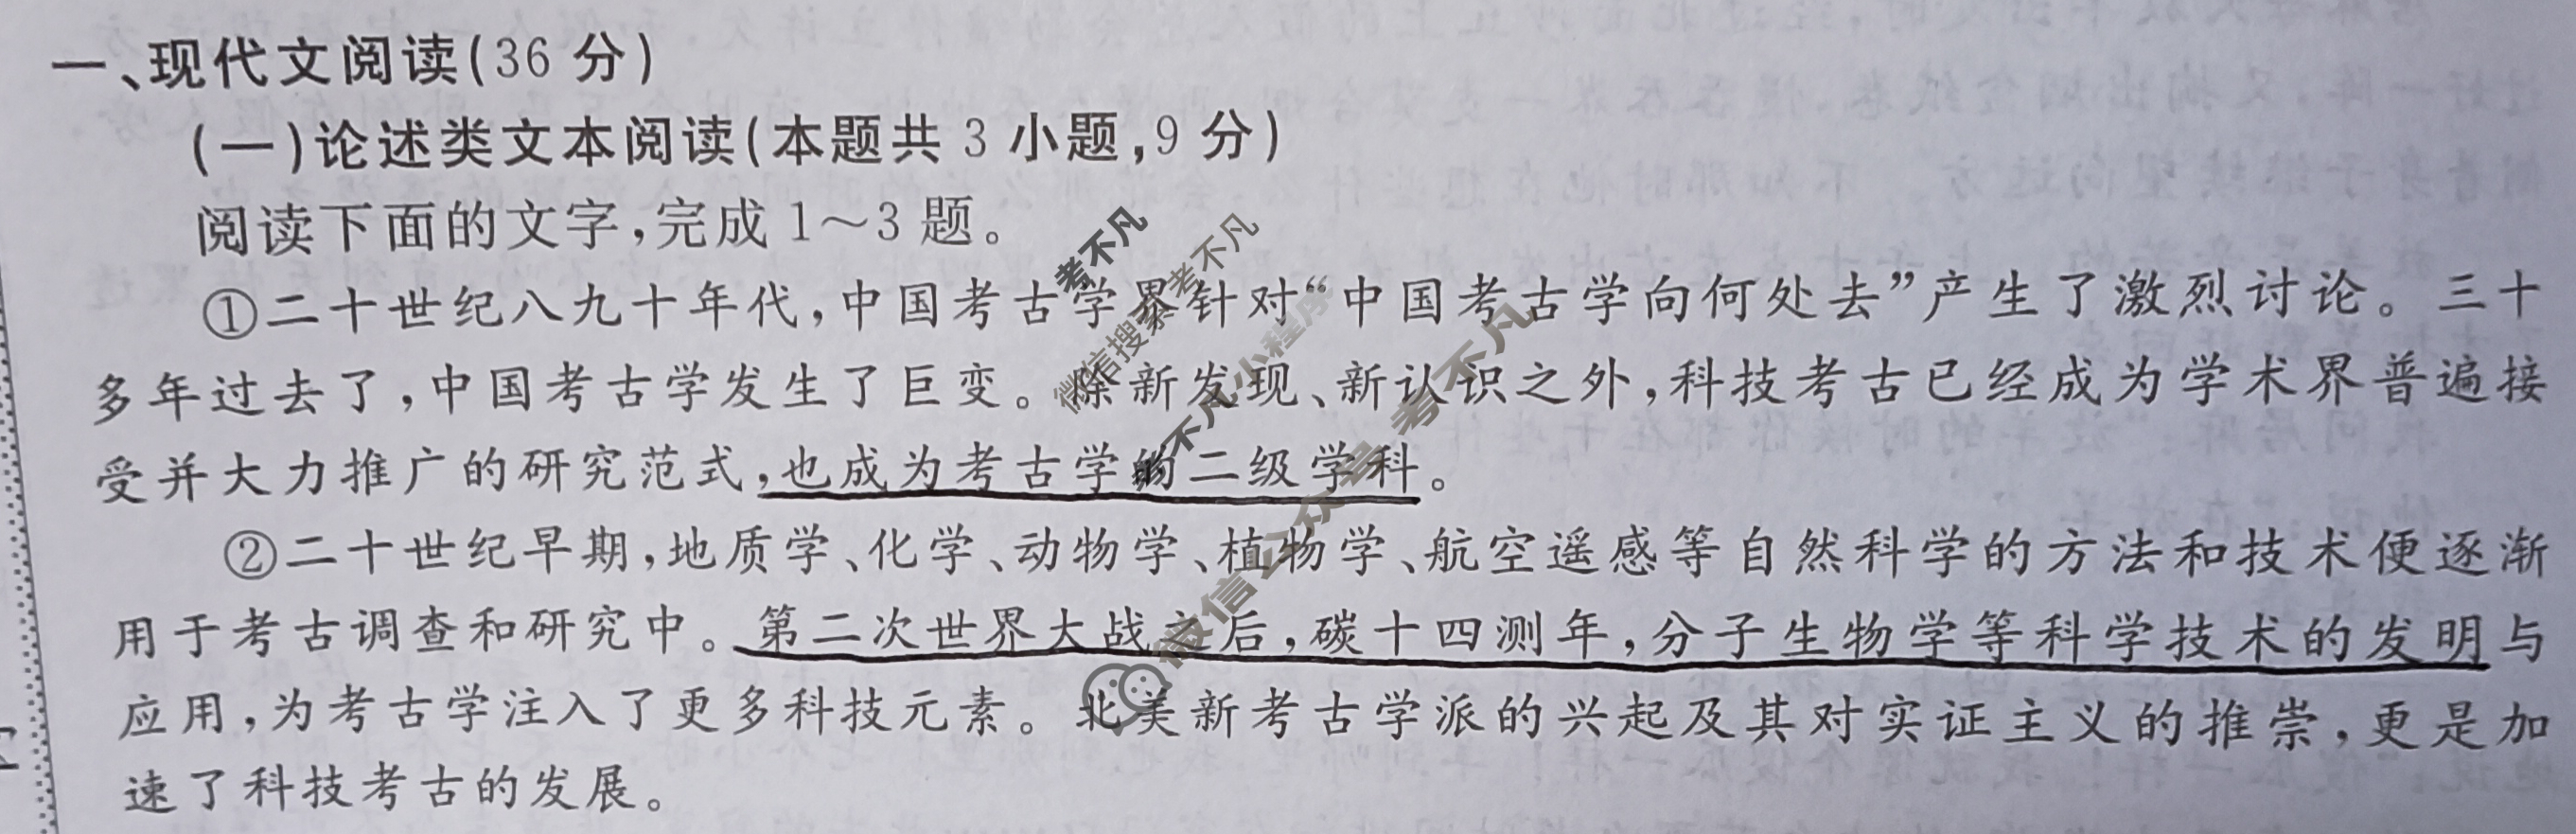 一、现代文阅读(36 分)
(一)论述类文本阅读(本题共 3 小题,9 分)
阅读下面的文字,完成 1～3 题。
①二十世纪八九十年代,中国考古学界针对“中国考古学向何处去”产生了激烈讨论。三十
多年过去了,中国考古学发生了巨变。除新发现、新认识之外,科技考古已经成为学术界普遍接
受并大力推广的研究范式,也成为考古学的二级学科。
②二十世纪早期,地质学、化学、动物学、植物学、航空遥感等自然科学的方法和技术便逐渐
用于考古调查和研究中。第二次世界大战之后,碳十四测年,分子生物学等科学技术的发明与
应用,为考古学注入了更多科技元素。北美新考古学派的兴起及其对实证主义的推崇,更是加
速了科技考古的发展。
考不凡
微信搜索考不凡
不凡小程序
微信公众号 考不凡